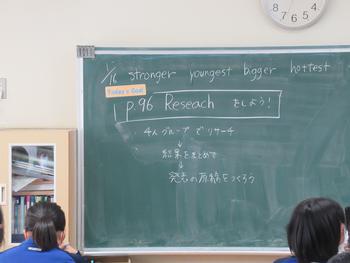 1/16 stronger youngest bigger hottest
Today's Goal
p.96 Reseach をしよう!
・4人グループでリサーチ
↓
・結果をまとめて
↓
発表の原稿をつくろう
8 7 6 5 4